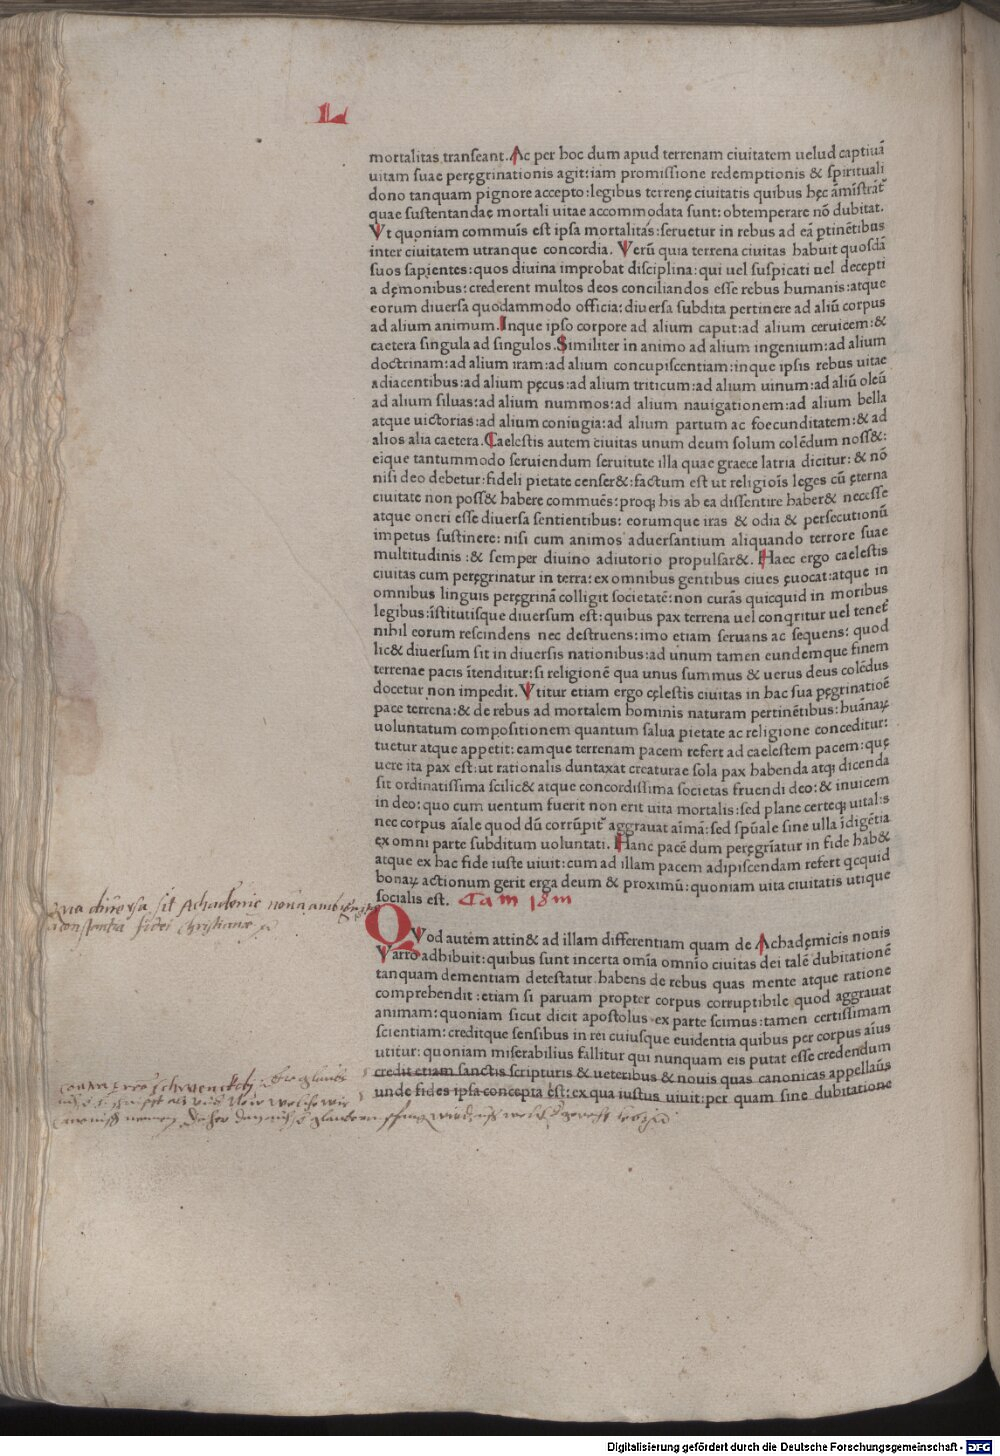 L
mortalitas transeant. Ac per hoc dum apud terrenam ciuitatem uelud captiuā
uitam suae peręgrinationis agit: iam promissione redemptionis & spirituali
dono tanquam pignore accepto: legibus terrenę ciuitatis quibus hęc āmīstrāt᷑
quae sustentandae mortali uitae accommodata sunt: obtemperare nō dubitat.
Vt quoniam commuīs est ipsa mortalitas: seruetur in rebus ad eā ꝑtinētibus
inter ciuitatem utranque concordia. Verū quia terrena ciuitas habuit quosdā
suos sapientes: quos diuina improbat disciplina: qui uel suspicati uel decepti
a dęmonibus: crederent multos deos conciliandos esse rebus humanis: atque
eorum diuersa quodammodo officia: diuersa subdita pertinere ad aliū corpus
ad alium animum. Inque ipso corpore ad alium caput: ad alium ceruicem: &
caetera singula ad singulos. Similiter in animo ad alium ingenium: ad alium
doctrinam: ad alium iram: ad alium concupiscentiam: inque ipsis rebus uitae
adiacentibus: ad alium pęcus: ad alium triticum: ad alium uinum: ad aliū oleū
ad alium siluas: ad alium nummos: ad alium nauigationem: ad alium bella
atque uictorias: ad alium coniugia: ad alium partum ac foecunditatem: & ad
alios alia caetera. Caelestis autem ciuitas unum deum solum colēdum noss&:
eique tantummodo seruiendum seruitute illa quae graece latria dicitur: & nō
nisi deo debetur: fideli pietate censer&: factum est ut religiōis leges cū ęterna
ciuitate non poss& habere commuēs: proqꝫ his ab ea dissentire haber& necesse
atque oneri esse diuersa sentientibus: eorumque iras & odia & persecutionū
impetus sustinere: nisi cum animos aduersantium aliquando terrore suae
multitudinis: & semper diuino adiutorio propulsar&. Haec ergo caelestis
ciuitas cum peręgrinatur in terra: ex omnibus gentibus ciues ęuocat: atque in
omnibus linguis peręgrinā colligit societatē: non curās quicquid in moribus
legibus: īstitutisque diuersum est: quibus pax terrena uel conqritur uel tenet᷑
nihil eorum rescindens nec destruens: imo etiam seruans ac sequens: quod
lic& diuersum sit in diuersis nationibus: ad unum tamen eundemque finem
terrenae pacis ītenditur: si religionē qua unus summus & uerus deus colēdus
docetur non impedit. Vtitur etiam ergo cęlestis ciuitas in hac sua pęgrinatioē
pace terrena: & de rebus ad mortalem hominis naturam pertinētibus: huānaꝝ
uoluntatum compositionem quantum salua pietate ac religione conceditur:
tuetur atque appetit: eamque terrenam pacem refert ad caelestem pacem: quę
uere ita pax est: ut rationalis duntaxat creaturae sola pax habenda atqꝫ dicenda
sit ordinatissima scilic& atque concordissima societas fruendi deo: & inuicem
in deo: quo cum uentum fuerit non erit uita mortalis: sed plane certeqꝫ uitalis
nec corpus aīale quod dū corrūpit᷑ aggrauat aīmā: sed spūale sine ulla īdigētia
ęx omni parte subditum uoluntati. Hanc pacē dum peręgrīatur in fide hab&
atque ex hac fide iuste uiuit: cum ad illam pacem adipiscendam refert qcquid
bonaꝝ actionum gerit erga deum & proximū: quoniam uita ciuitatis utique
socialis est. Cam 18m
Qua diuersa sit Achademie noua amb
a constantia fidei christiane
QVod autem attin& ad illam differentiam quam de Achadęmicis nouis
Varro adhibuit: quibus sunt incerta omīa omnīo ciuitas dei talē dubitationē
tanquam dementiam detestatur habens de rebus quas mente atque ratione
comprehendit: etiam si paruam propter corpus corruptibile quod aggrauat
animam: quoniam sicut dicit apostolus ex parte scimus: tamen certissimam
scientiam: creditque sensibus in rei cuiusque euidentia quibus per corpus aīus
utitur: quoniam miserabilius fallitur qui nunquam eis putat esse credendum
credit etiam sanctis scripturis & ueteribus & nouis quas canonicas appellaūs
unde fides ipsa concepta est: ex qua iustus uiuit: per quam sine dubitatione
Digitalisierung gefördert durch die Deutsche Forschungsgemeinschaft - DFG